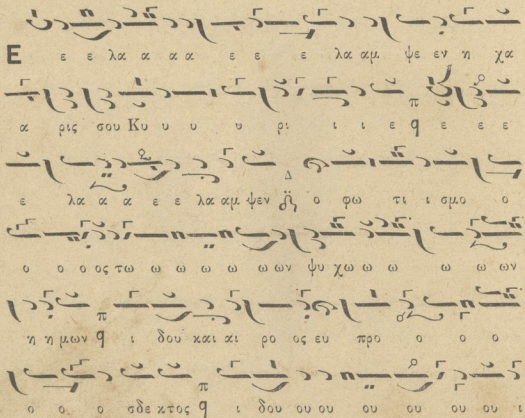 Ε ε ε λα α α α ε ε ε λα αμ ψε εν η χα
α ρις σου Κυ υ υ υ ρι ι ι ε π q ε ε ε
ε λα α α ε ε λα αμ ψεν Δ ο φω τι ι σμο ο
ο ο ο ος τω ω ω ω ω ων ψυ χω ω ω ω ων
η η μων π q ι δου και αι ρο ος ευ προ ο ο ο
ο ο ο σδε κτος π q ι δου ου ου ου ου ου ου ι